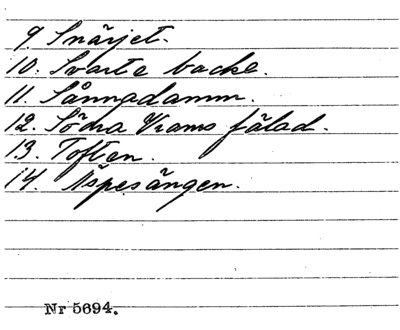 9. Snärjet.
10. Svarte backe.
11. Sånnadamm.
12. Södra Vrams fälad.
13. Toften.
14. Äspesängen.
Nr 5694.